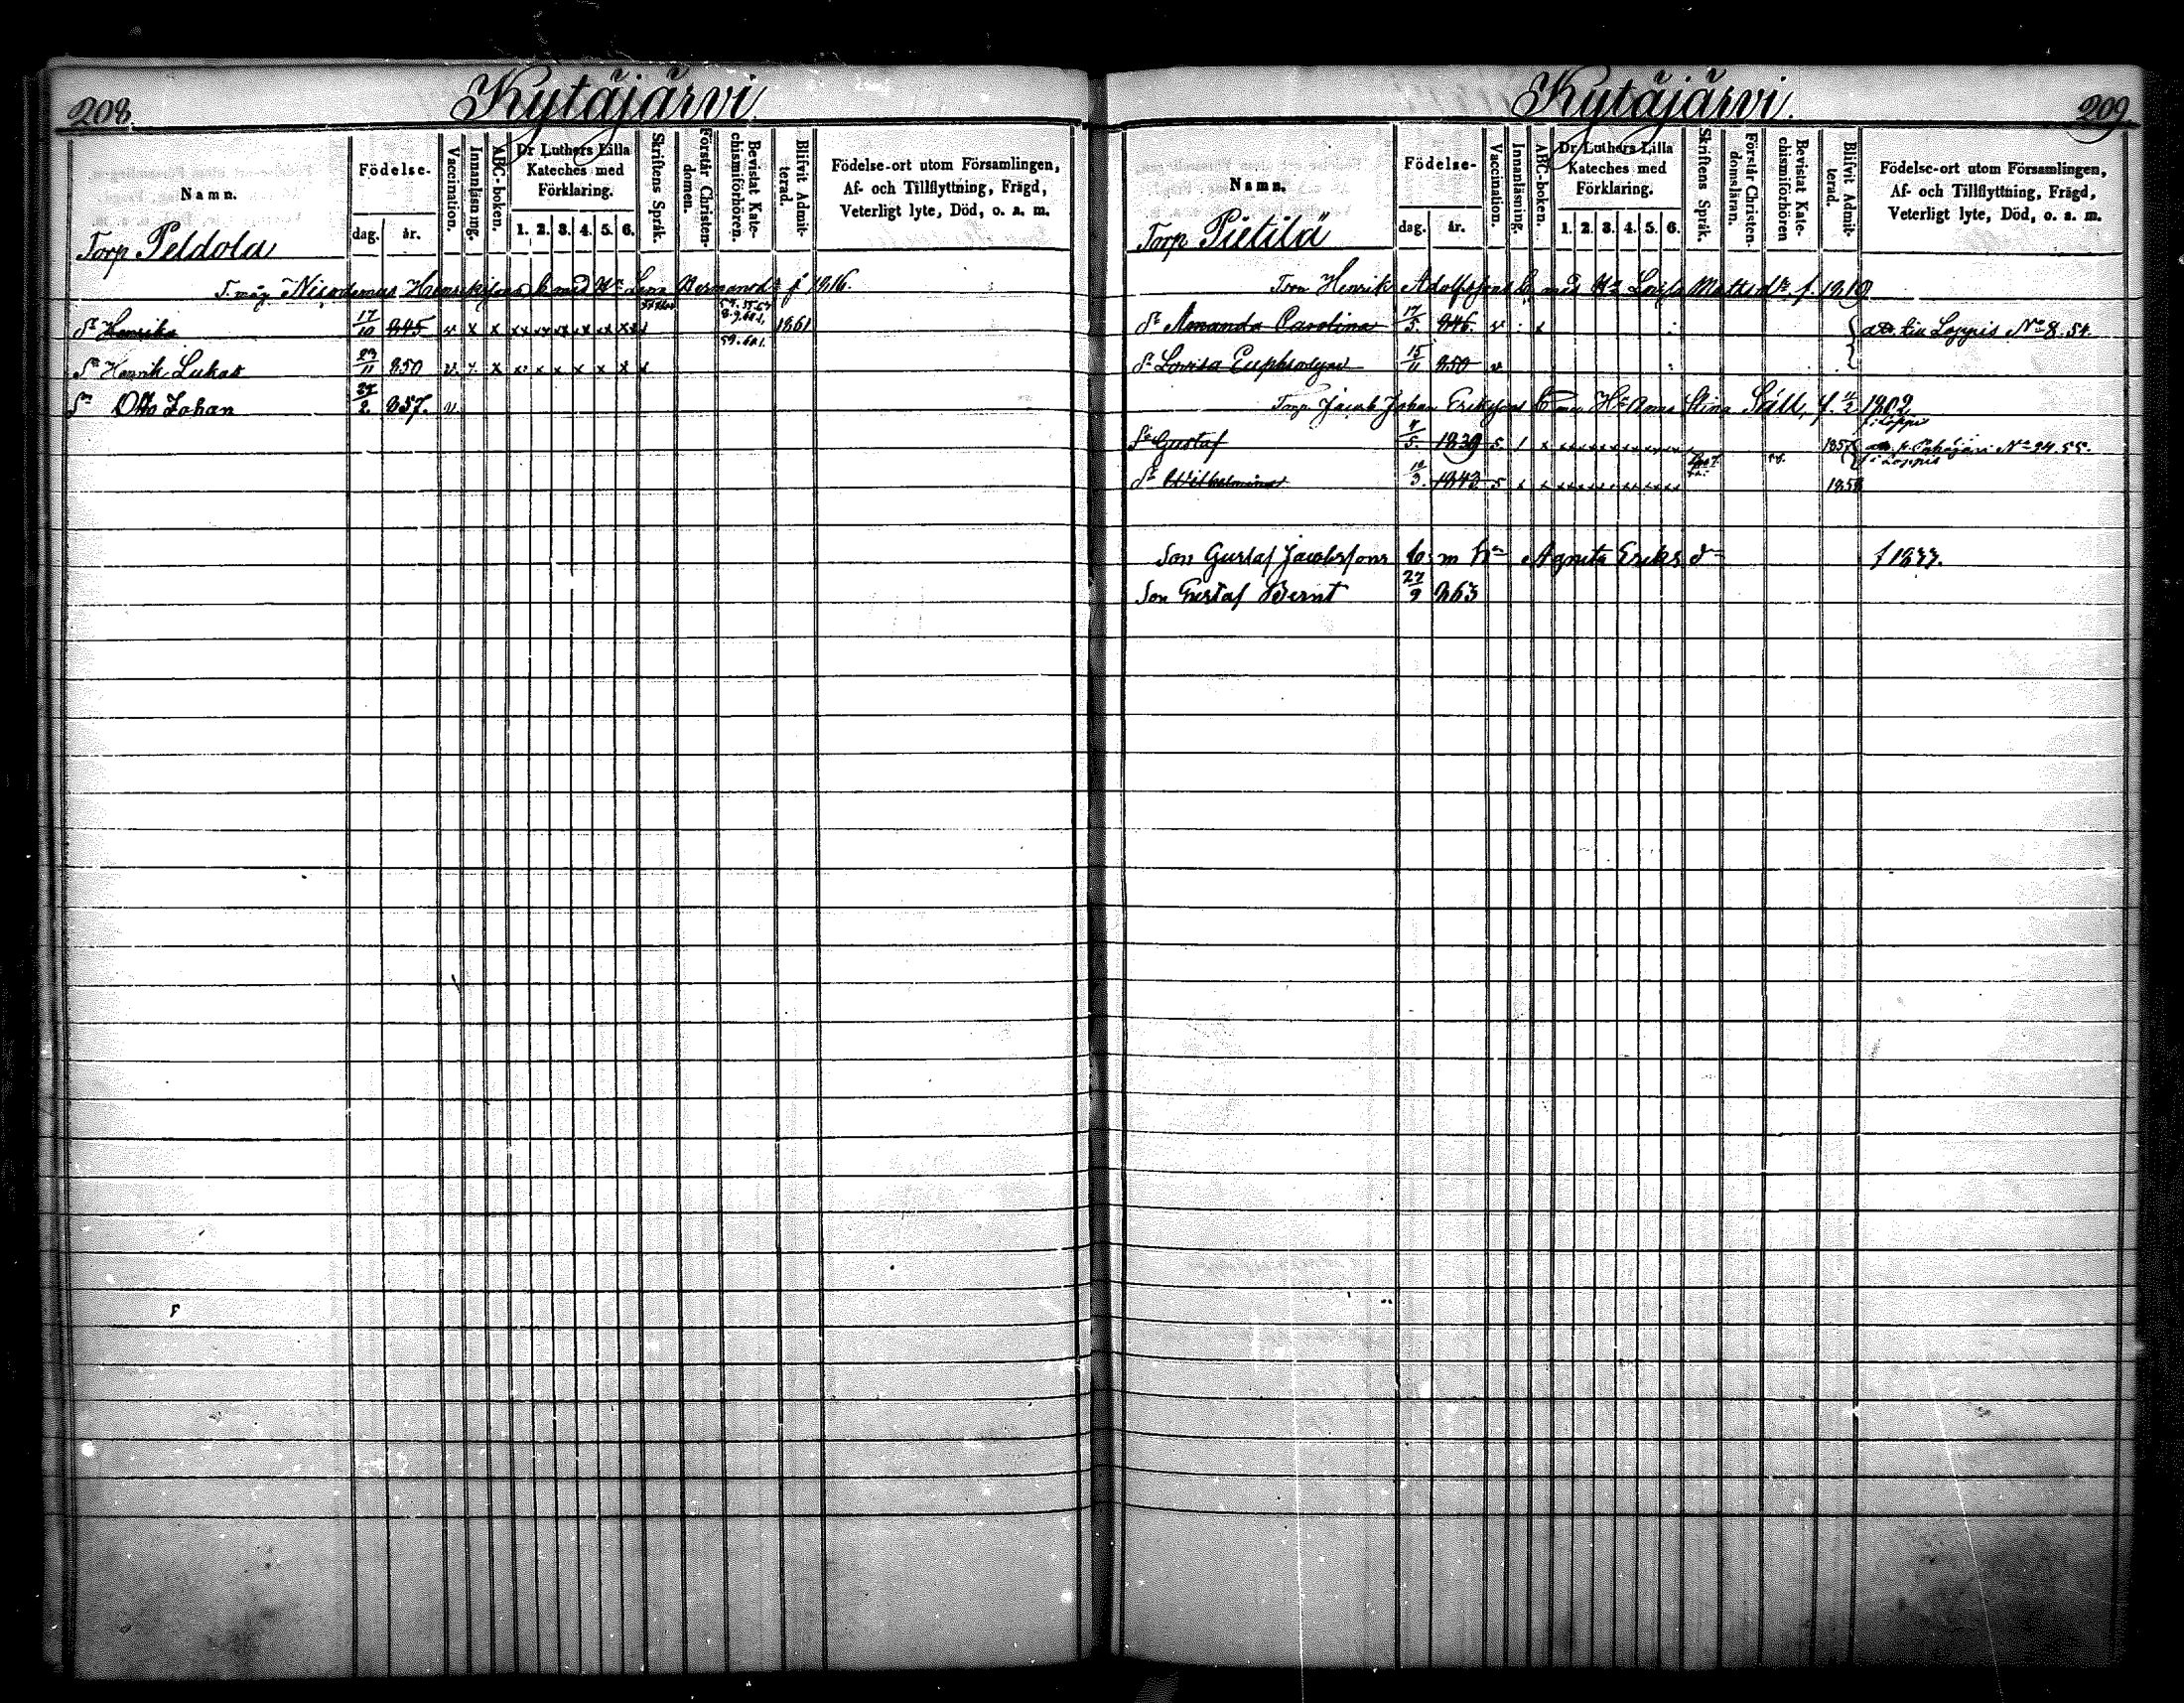 208.
Kytäjärvi.
Namn.
Födelse-
dag. år.
Vaccination.
Innanläsning.
ABC-boken.
Dr Luthers Lilla
Kateches med
Förklaring.
1. 2. 3. 4. 5. 6.
Skriftens Språk.
Förstår Christen-
domen.
Bevistat Kate-
chismiförhören.
Blifvit Admit-
terad.
Födelse-ort utom Församlingen,
Af- och Tillflyttning, Frägd,
Veterligt lyte, Död, o. a. m.
Torp Peldola
T. måg Nicodemus Henrikssons b med Hu Lena Hermansdr f 1816.
Dr Henrika 17/10 845 v x x xx xx xx x xx xx 1861
Sn Henrik Lukas 23/11 850 v x x x x x x x x x
Sn Otto Johan 27/2 857. v
209.
Kytäjärvi.
Namn.
Födelse-
dag. år.
Vaccination.
Innanläsning.
ABC-boken.
Dr Luthers Lilla
Kateches med
Förklaring.
1. 2. 3. 4. 5. 6.
Skriftens Språk.
Förstår Christen-
domsläran.
Bevistat Kate-
chismiförhören
Blifvit Admit-
terad.
Födelse-ort utom Församlingen,
Af- och Tillflyttning, Frägd,
Veterligt lyte, Död, o. a. m.
Torp Pietilä
Torp Henrik Adolfssons b med Hu Lovisa Mattsdr, f. 1819
Dr Amanda Carolina 17/5. 846. v x till Loppis No 8. 54.
Dr Lovisa Euphrosyne 15/11 850 v
Torp. Jacob Johan Erikssons b med Hu Anna Stina Ståll, f. 11/2 1802
f. i Loppi
Sn Gustaf 4/5. 1839 5 1 x 1857 No 94. 55.
f i Loppis
Dr Wilhelmina 10/3. 1843 5 x x 1858
Son Gustaf Jacobssons b m hu Agneta Eriksdr f 1833.
Son Gustaf Bernt 27/9 863